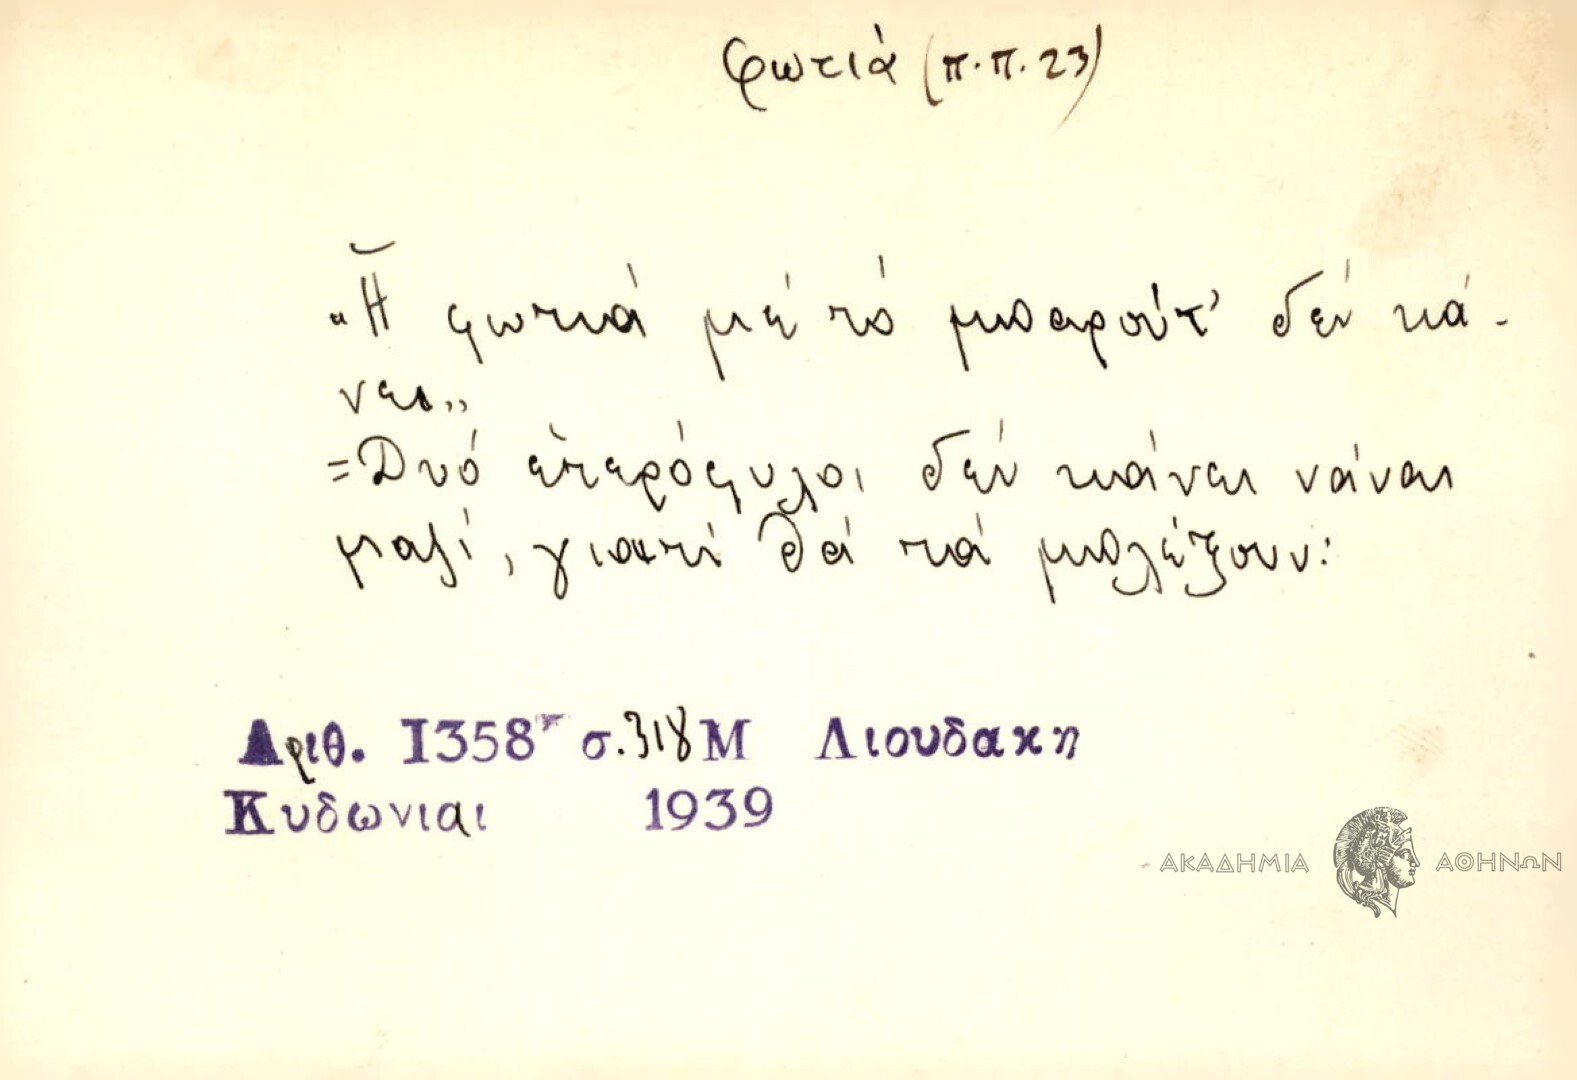 φωτιὰ (π.π. 23)
"Ἡ φωτιά μέ τό μπαρούτ' δέν κά-
νει,,
=Δυό ἑτερόφυλοι δέν κάνει νάναι
μαζί, γιατί θά τά μπλέξουν:
Αριθ. 1358 σ. 318 Μ Λιουδακη
Κυδωνιαι 1939
ΑΚΑΔΗΜΙΑ ΑΘΗΝΩΝ